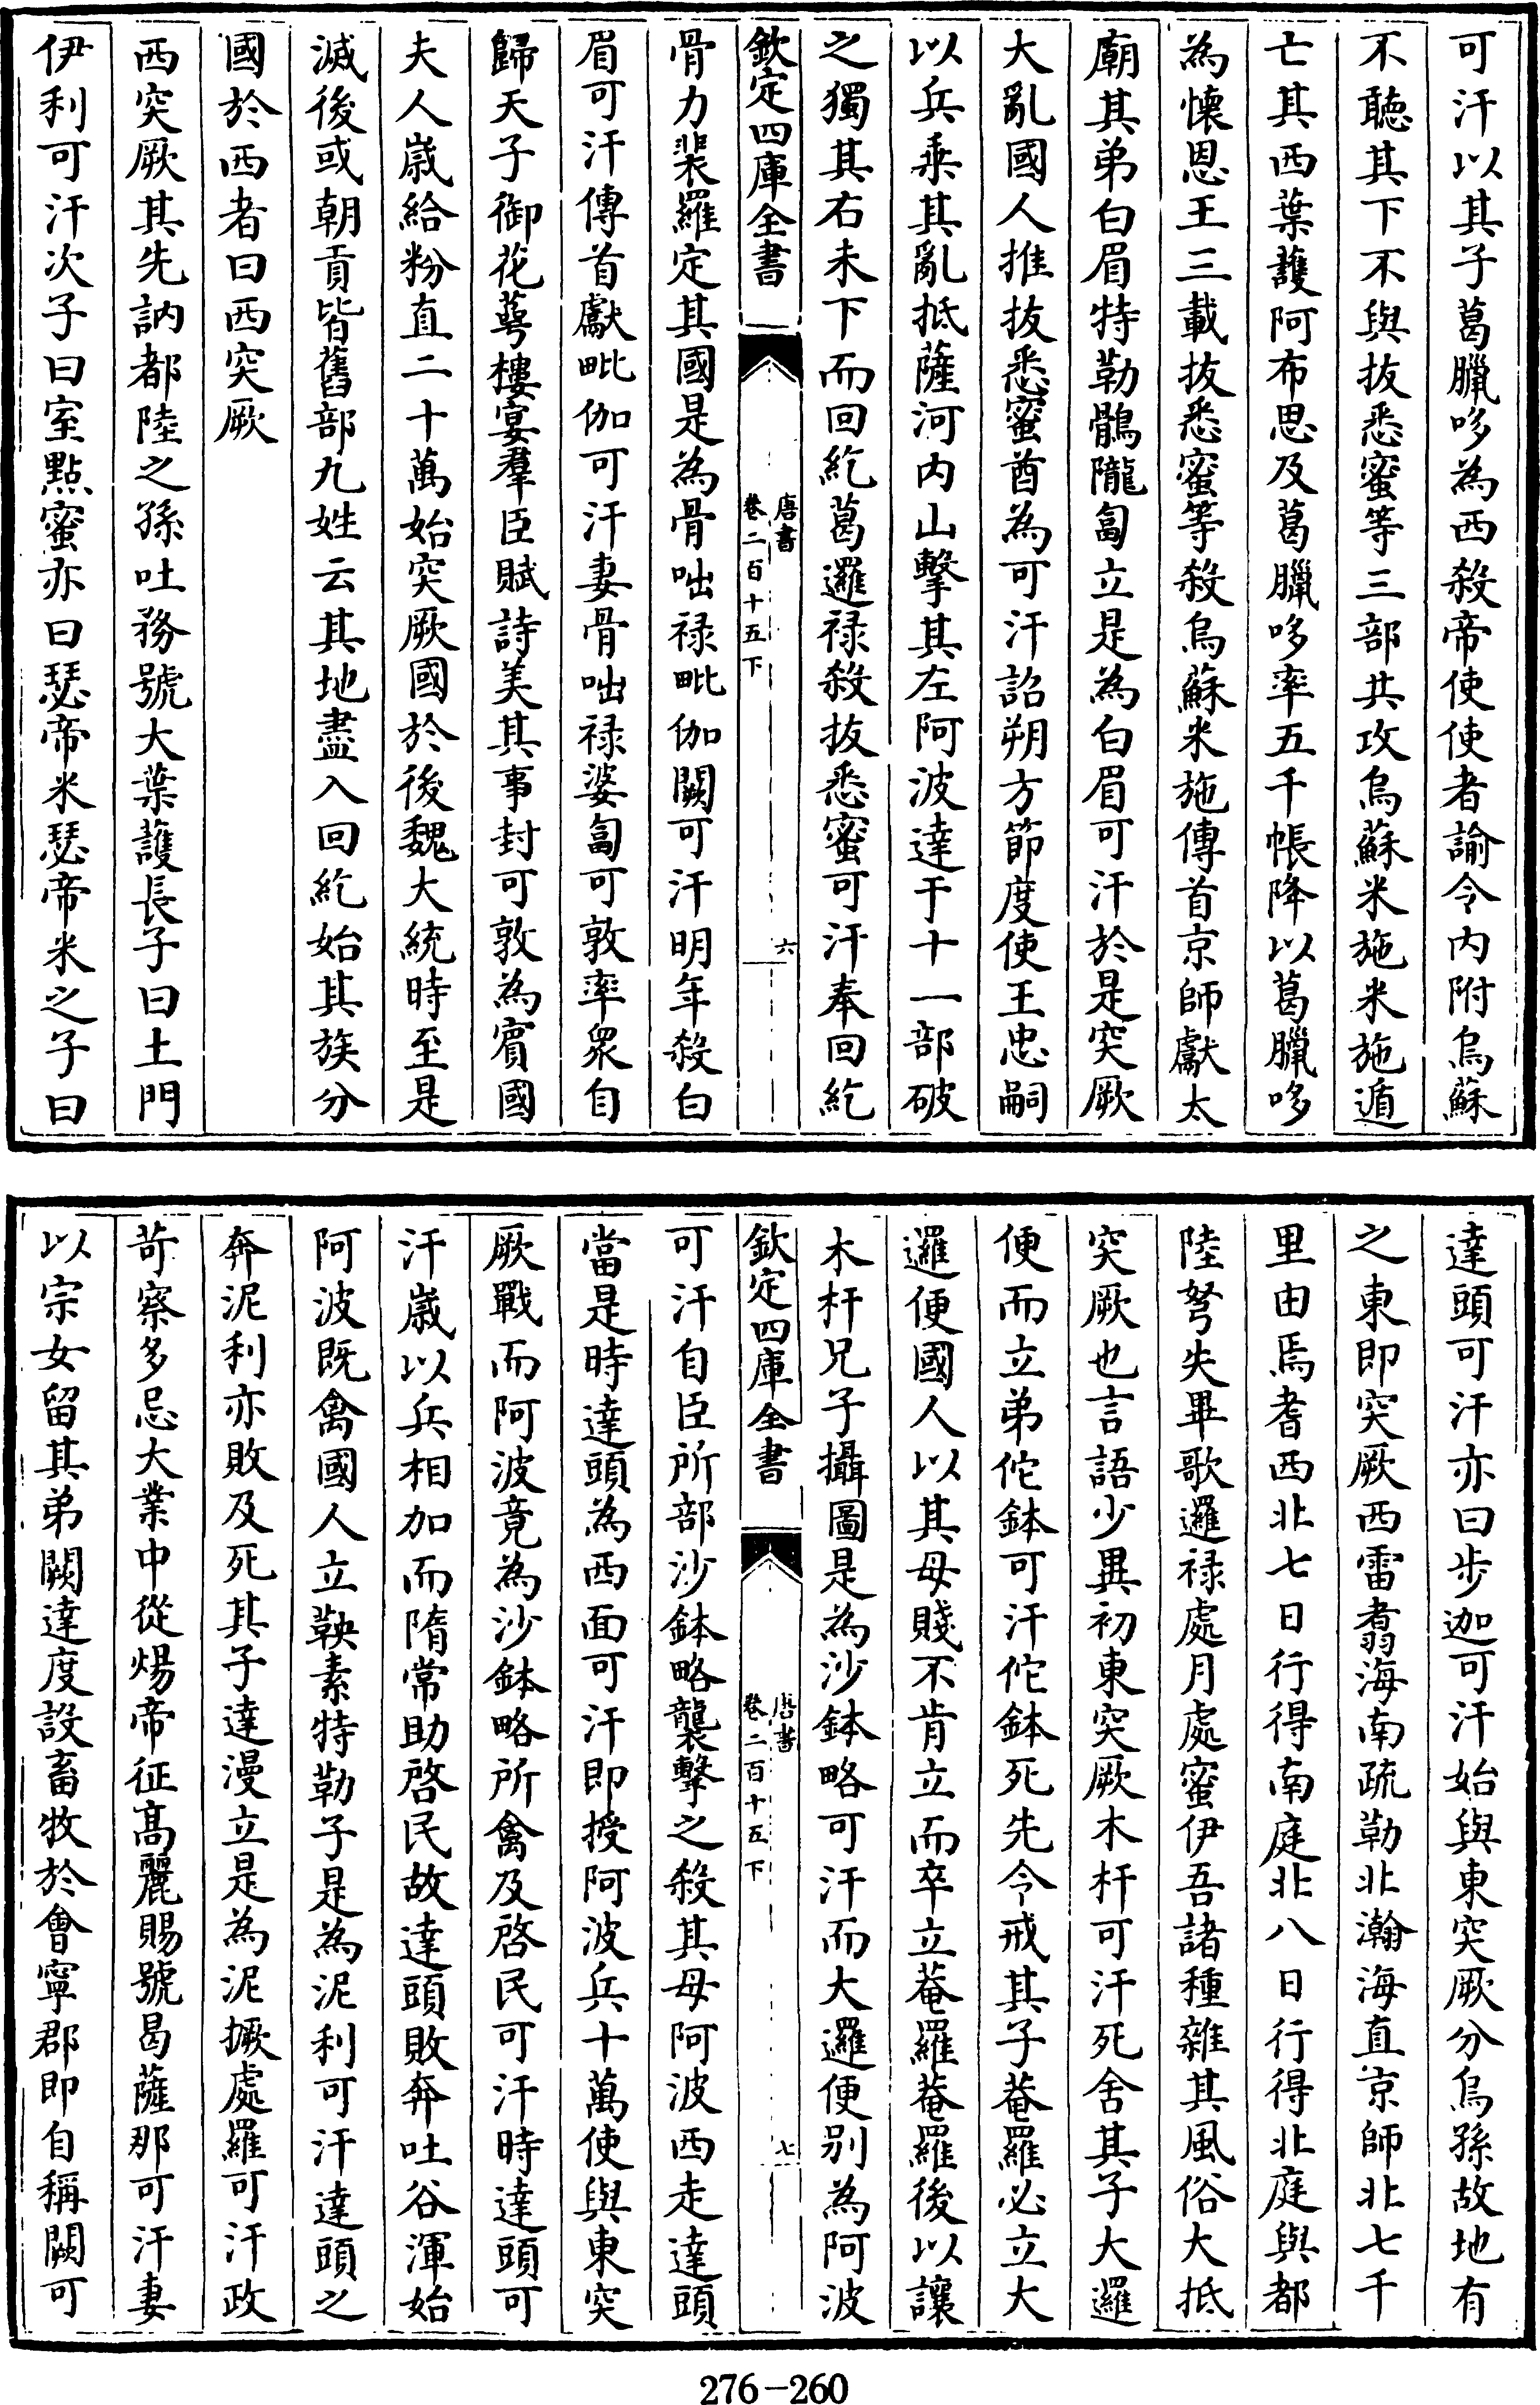 可汗以其子葛臘哆為西殺帝使使者諭令内附烏蘇
不聽其下不與抜悉蜜等三部共攻烏蘇米施米施遁
亡其西葉䕶阿布思及葛臘哆率五千帳降以葛臘哆
為懐恩王三載抜悉蜜等殺烏蘇米施傳首京師獻太
廟其弟白眉特勒鶻隴匐立是為白眉可汗於是突厥
大亂國人推抜悉蜜酋為可汗詔朔方節度使王忠嗣
以兵乗其亂抵薩河内山擊其左阿波達干十一部破
之獨其右未下而回紇葛邏禄殺抜悉蜜可汗奉回紇
欽定四庫全書
唐書
卷二百十五下
六
骨力裴羅定其國是為骨咄禄毗伽闕可汗明年殺白
眉可汗傳首獻毗伽可汗妻骨咄禄婆匐可敦率衆自
歸天子御花萼樓宴羣臣賦詩美其事封可敦為賓國
夫人嵗給粉直二十萬始突厥國於後魏大統時至是
滅後或朝貢皆舊部九姓云其地盡入回紇始其族分
國於西者曰西突厥
西突厥其先訥都陸之孫吐務號大葉䕶長子曰土門
伊利可汗次子曰室點蜜亦曰瑟帝米瑟帝米之子曰
達頭可汗亦曰步迦可汗始與東突厥分烏孫故地有
之東即突厥西雷翥海南疏勒北瀚海直京師北七千
里由焉耆西北七日行得南庭北八日行得北庭與都
陸弩失畢歌邏禄處月處蜜伊吾諸種雜其風俗大抵
突厥也言語少異初東突厥木杆可汗死舍其子大邏
便而立弟佗鉢可汗佗鉢死先令戒其子菴羅必立大
邏便國人以其母賤不肯立而卒立菴羅菴羅後以讓
木杆兄子攝圖是為沙鉢略可汗而大邏便别為阿波
欽定四庫全書
唐書
卷二百十五下
七
可汗自臣所部沙鉢略襲擊之殺其母阿波西走達頭
當是時達頭為西面可汗即授阿波兵十萬使與東突
厥戰而阿波竟為沙鉢略所禽及啓民可汗時達頭可
汗嵗以兵相加而隋常助啓民故達頭敗奔吐谷渾始
阿波既禽國人立鞅素特勒子是為泥利可汗達頭之
奔泥利亦敗及死其子達漫立是為泥撅處羅可汗政
苛察多忌大業中從煬帝征髙麗賜號曷薩那可汗妻
以宗女留其弟闕達度設畜牧於會寧郡即自稱闕可
276-260